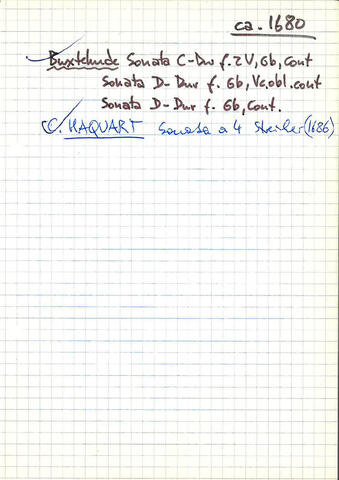 ca. 1680
Buxtehude Sonata C-Dur f. 2V, Gb, Cont
Sonata D-Dur f. Gb, Vc.obl. cont
Sonata D-Dur f. Gb, Cont.
C. HAQUART Sonata a 4 Streicher (1686)